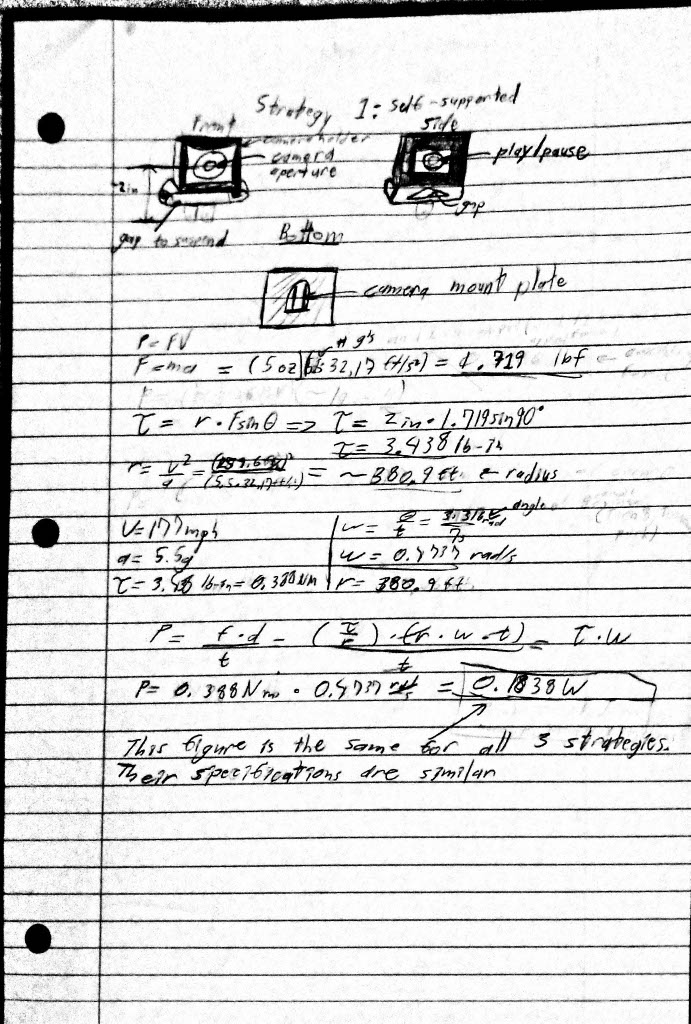 Strategy 1: Self-supported
Front
Side
camera holder
camera
aperture
play/pause
~2in
gap
gap to suspend
Bottom
camera mount plate
P = FV
# g's
F=ma = (5oz)(5.5·32.17 ft/s²) = 1.719 lbf
τ = r·Fsinθ => τ = 2in·1.719sin90°
τ = 3.438 lb-in
r = v²/a = / (5.5·32.17ft/s²) = ~380.9 ft ← radius
V=177mph
a = 5.5g
τ = 3.438 lb-in = 0.388Nm
w = θ/t = 3.316 rad/7s
angle
w = 0.4737 rad/s
r = 380.9 ft
P = f·d/t = (τ/r)·(r·w·t)/t = τ·w
P = 0.388Nm · 0.4737 rad/s = 0.1838W
This figure is the same for all 3 strategies.
Their specifications are similar